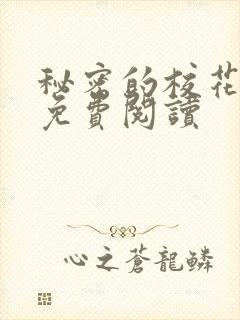 秘密的校花
免費閱讀
心之蒼龍鱗